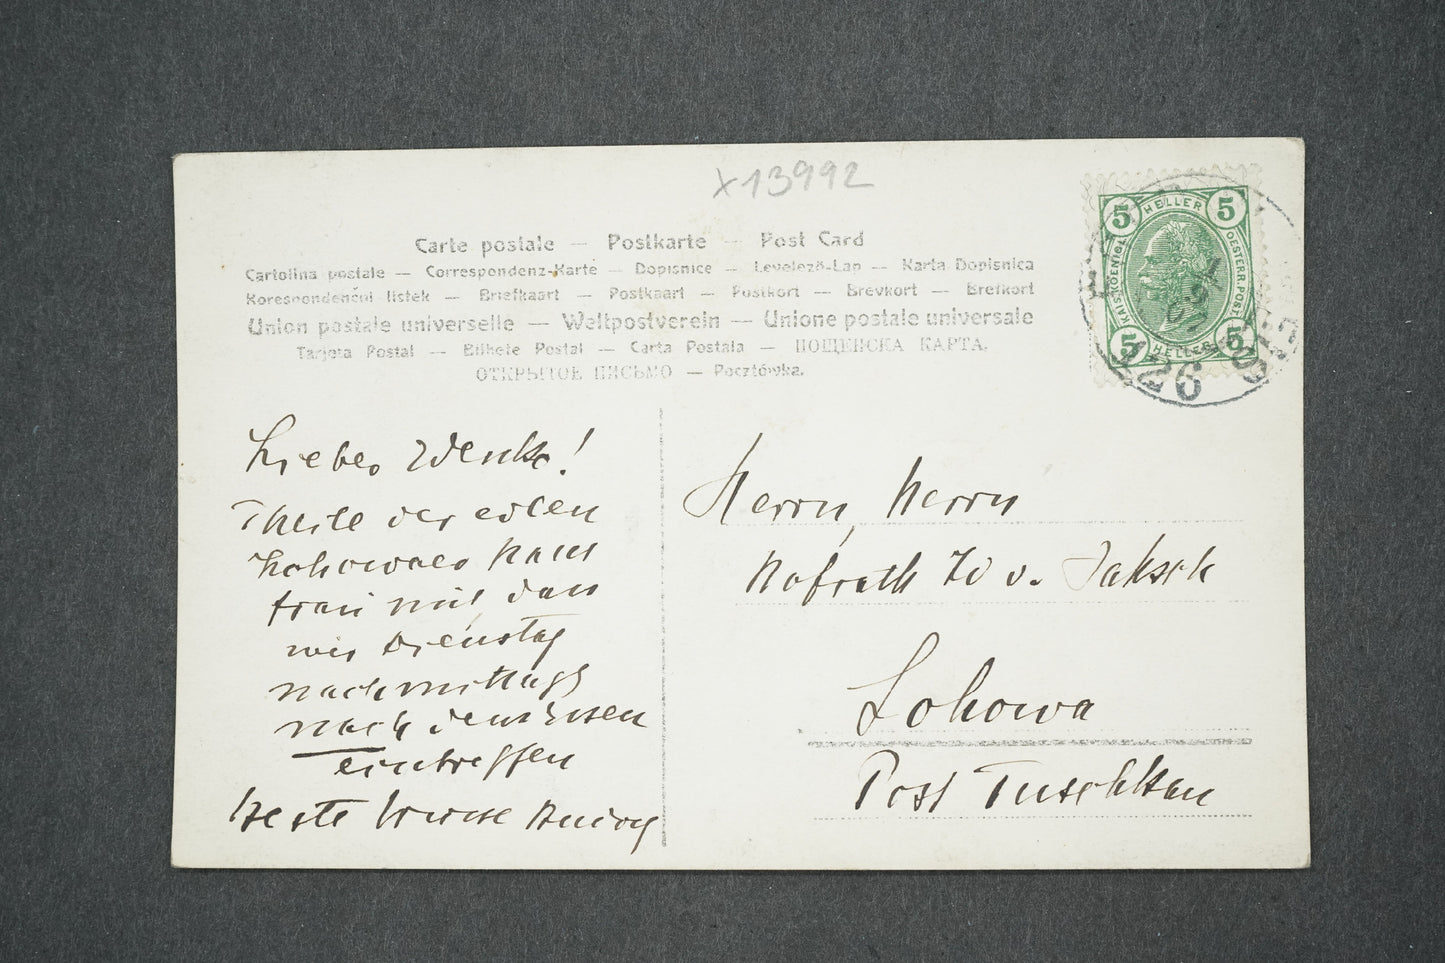 x 13992
Carte postale — Postkarte — Post Card
Cartolina postale — Correspondenz-Karte — Dopisnice — Levelező-Lap — Karta Dopisnica
Korespondenční lístek — Briefkaart — Postkaart — Postkort — Brevkort — Brefkort
Union postale universelle — Weltpostverein — Unione postale universale
Tarjeta Postal — Bilhete Postal — Carta Postala — ПОЩЕНСКА КАРТА.
ОТКРЫТОЕ ПИСЬМО — Pocztówka.
5 HELLER 5
KAIS. KOENIGL. OESTERR. POST
5 HELLER 5
26
Lieber Wenko!
Theile der edlen
Lohowaer Haus
frau mit, dass
wir Dienstag
nachmittags
nach dem Essen
eintreffen
Beste Grüsse
Herrn, Herrn
Hofrath W v. Jaksch
Lohowa
Post Tuschkau